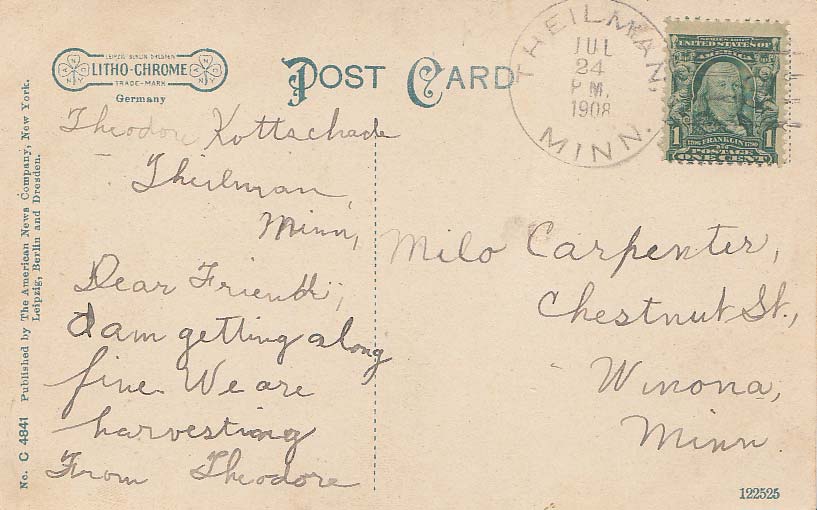 LEIPZIG BERLIN DRESDEN
LITHO-CHROME
TRADE-MARK
Germany
POST CARD
THEILMAN,
JUL
24
P M.
1908
MINN.
SERIES 1902
UNITED STATES OF
AMERICA
1 FRANKLIN 1
POSTAGE
ONE CENT
Theodore Kottschade
Theilman,
Minn,
Dear Friend;
I am getting along
fine. We are
harvesting
From Theodore
Milo Carpenter,
Chestnut St.,
Winona,
Minn
No. C 4841 Published by The American News Company, New York.
Leipzig, Berlin and Dresden.
122525